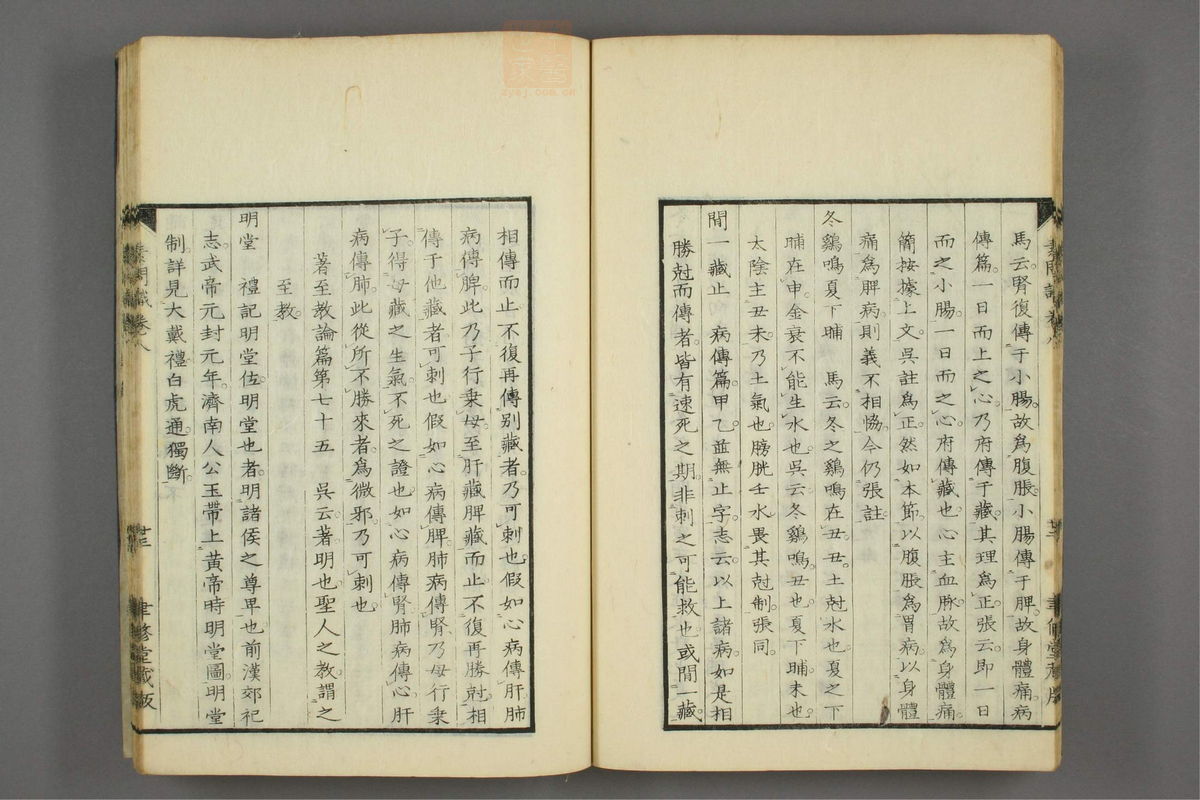 馬云腎復傳于小腸故為腹脹小腸傳于脾故身體痛病
傳篇一日而上之心乃府傳于藏其理為正張云即一日
而之小腸一日而之心府傳藏也心主血脈故為身體痛
簡按據上文吳註為正然如本節以腹脹為胃病以身體
痛為脾病則義不相恊今仍張註
冬鷄鳴夏下晡　馬云冬之鷄鳴在丑丑土尅水也夏之下
晡在申金衰不能生水也吳云冬鷄鳴丑也夏下晡未也
太陰主丑未乃土氣也膀胱壬水畏其尅制張同
間一藏止　病傳篇甲乙並無止字志云以上諸病如是相
勝尅而傳者皆有速死之期非刺之可能救也或間一藏
相傳而止不復再傳别藏者乃可刺也假如心病傳肝肺
病傳脾此乃子行乗母至肝藏脾藏而止不復再勝尅相
傳于他藏者可刺也假如心病傳脾肺病傳腎乃母行乗
子得母藏之生氣不死之證也如心病傳腎肺病傳心肝
病傳肺此從所不勝來者為微邪乃可刺也
著至教論篇第七十五　吳云著明也聖人之教謂之
至教
明堂　禮記明堂位明堂也者明諸侯之尊卑也前漢郊祀
志武帝元封元年濟南人公玉帶上黄帝時明堂圖明堂
制詳見大戴禮白虎通獨斷
素問識卷八
廿三
聿修堂藏版